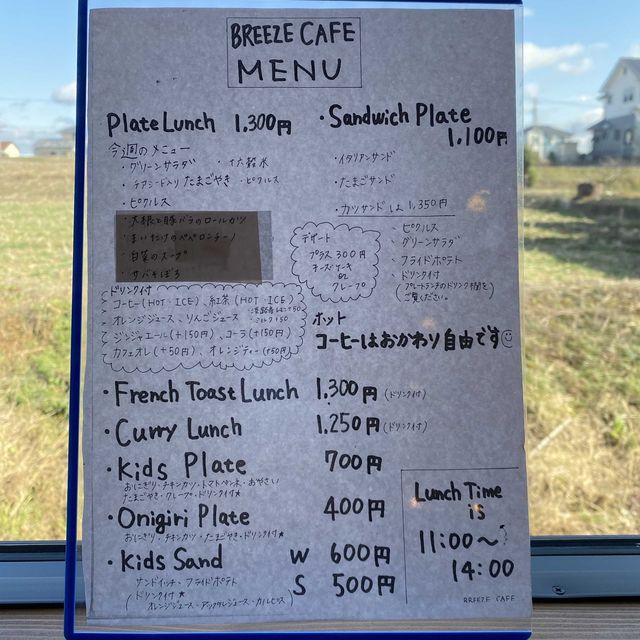 BREEZE CAFE
MENU
Plate Lunch 1,300円
今週のメニュー
・グリーンサラダ ・十六穀米
・チアシード入りたまごやき ・ピクルス
・ピクルス
・大根と豚バラのロールカツ
・まいたけのペペロンチーノ
・白菜のスープ
・サバそぼろ
ドリンク付
コーヒー(HOT・ICE)、紅茶(HOT ICE)
オレンジジュース、りんごジュース
ジンジャエール(+150円)、コーラ(+150円)
カフェオレ(+50円)、オレンジティー(+50円)
・Sandwich Plate
1,100円
・イタリアンサンド
・たまごサンド
・カツサンドは1,350円
ピクルス
グリーンサラダ
フライドポテト
ドリンク付
(プレートランチのドリンク欄を
ご覧ください。)
デザート
プラス300円
チーズケーキ
or
クレープ
ホット
コーヒーはおかわり自由です
・French Toast Lunch 1,300円(ドリンク付)
・Curry Lunch 1,250円(ドリンク付)
・Kids Plate 700円
おにぎり・チキンカツ・トマトペンネ・おやさい
たまごやき・クレープ・ドリンク付★
・Onigiri Plate 400円
おにぎり・チキンカツ・たまごやき・ドリンク付★
・Kids Sand W 600円
S 500円
サンドイッチ・フライドポテト
ドリンク付★
(オレンジジュース・アップルジュース・カルピス)
Lunch Time
is
11:00〜
14:00
BREEZE CAFE